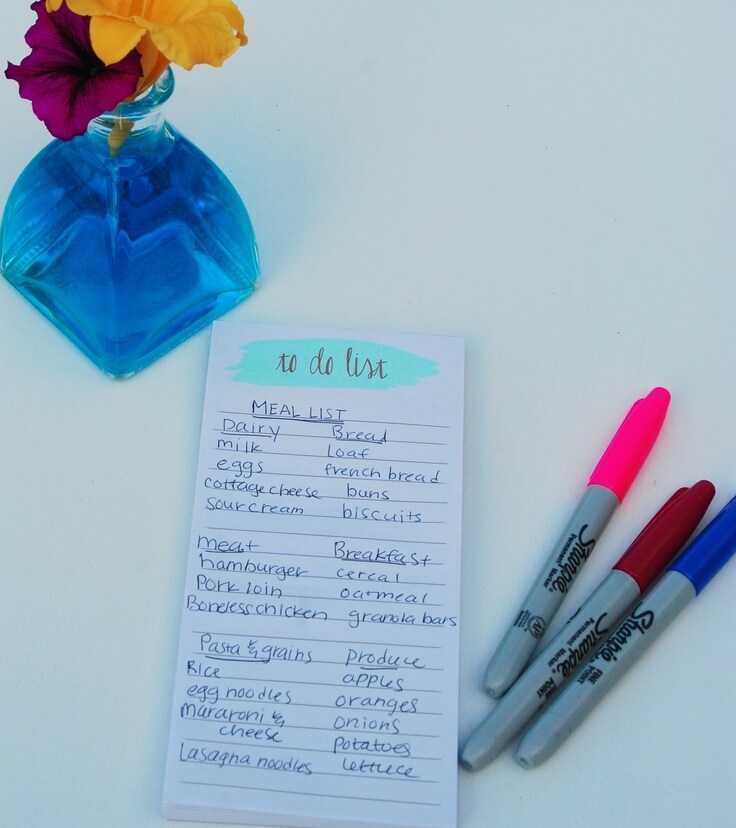 to do list
MEAL LIST
Dairy Bread
milk Loaf
eggs french bread
cottage cheese buns
sour cream biscuits
meat Breakfast
hamburger cereal
Pork loin oatmeal
Boneless chicken granola bars
Pasta & grains produce
Rice apples
egg noodles oranges
mararoni & onions
cheese potatoes
Lasagna noodles lettuce
Sharpie
PERMANENT MARKER
AP
Sharpie
PERMANENT MARKER
FINE POINT
Sharpie
FINE POINT